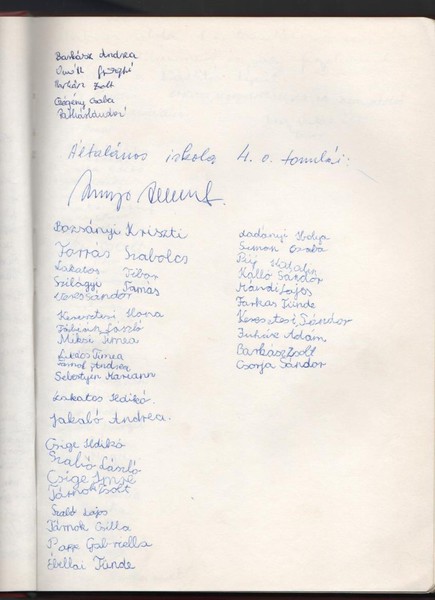 Barkász Andrea
Barkász Zsolt
Csaba
Általános iskola 4. o. tanulói:
Bozsányi Kriszti
Forrás Szabolcs
Lakatos Tibor
Szilágyi Tamás
Veres Sándor
Keresztesi Ilona
László
Miksi Tímea
Lukács Tímea
Andrea
Sebestyén Mariann
Lakatos Ildikó.
Jakabó Andrea.
Csige Ildikó
Szabó László
Csige Imre
Tárnok Zsolt
Szabó Lajos
Tárnok Csilla
Papp Gabriella
Ébellai Tünde
Ladányi Ibolya
Simon Csaba
Pág Katalin
Kálló Sándor
Mándi Lajos
Farkas Tünde
Keresztesi Sándor
Juhász Ádám
Barkász Zsolt
Csorja Sándor